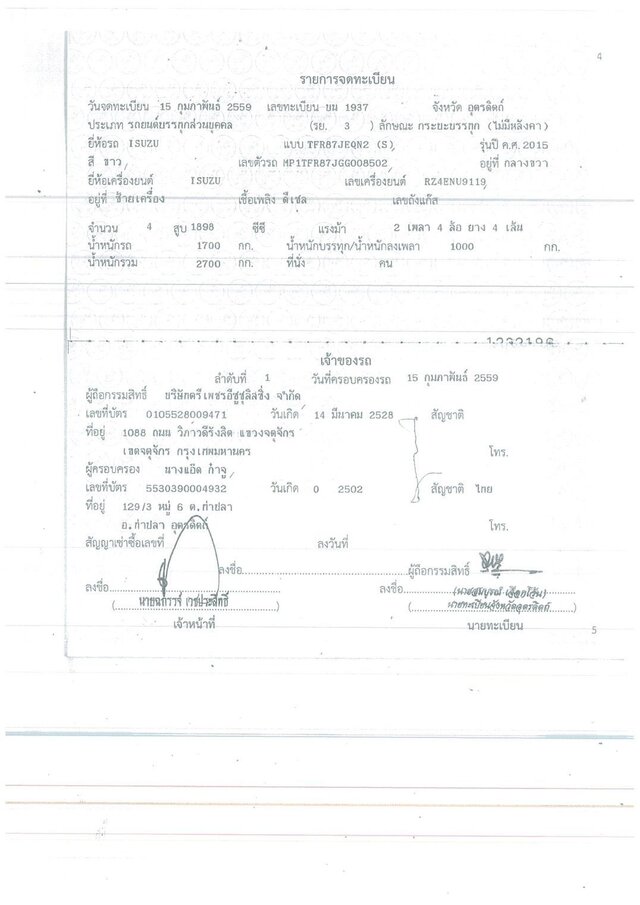 4
รายการจดทะเบียน
วันจดทะเบียน 15 กุมภาพันธ์ 2559 เลขทะเบียน บม 1937 จังหวัด อุตรดิตถ์
ประเภท รถยนต์บรรทุกส่วนบุคคล (รย. 3 ) ลักษณะ กระบะบรรทุก (ไม่มีหลังคา)
ยี่ห้อรถ ISUZU แบบ TFR87JEQN2 (S) รุ่นปี ค.ศ. 2015
สี ขาว เลขตัวรถ MP1TFR87JGG008502 อยู่ที่ กลางขวา
ยี่ห้อเครื่องยนต์ ISUZU เลขเครื่องยนต์ RZ4ENU9119
อยู่ที่ ซ้ายเครื่อง เชื้อเพลิง ดีเซล เลขถังแก๊ส
จำนวน 4 สูบ 1898 ซีซี แรงม้า 2 เพลา 4 ล้อ ยาง 4 เส้น
น้ำหนักรถ 1700 กก. น้ำหนักบรรทุก/น้ำหนักลงเพลา 1000 กก.
น้ำหนักรวม 2700 กก. ที่นั่ง คน
เจ้าของรถ
ลำดับที่ 1 วันที่ครอบครองรถ 15 กุมภาพันธ์ 2559
ผู้ถือกรรมสิทธิ์ บริษัทตรีเพชรอีซูซุลิสซิ่ง จำกัด
เลขที่บัตร 0105528009471 วันเกิด 14 มีนาคม 2528 สัญชาติ
ที่อยู่ 1088 ถนน วิภาวดีรังสิต แขวงจตุจักร
เขตจตุจักร กรุงเทพมหานคร โทร.
ผู้ครอบครอง นางแอ๊ด กำจู
เลขที่บัตร 5530390004932 วันเกิด 0 2502 สัญชาติ ไทย
ที่อยู่ 129/3 หมู่ 6 ต.ท่าปลา
อ.ท่าปลา อุตรดิตถ์ โทร.
สัญญาเช่าซื้อเลขที่ ลงวันที่
ลงชื่อ ผู้ถือกรรมสิทธิ์
ลงชื่อ ลงชื่อ
เจ้าหน้าที่ นายทะเบียนจังหวัดอุตรดิตถ์
นายทะเบียน
5